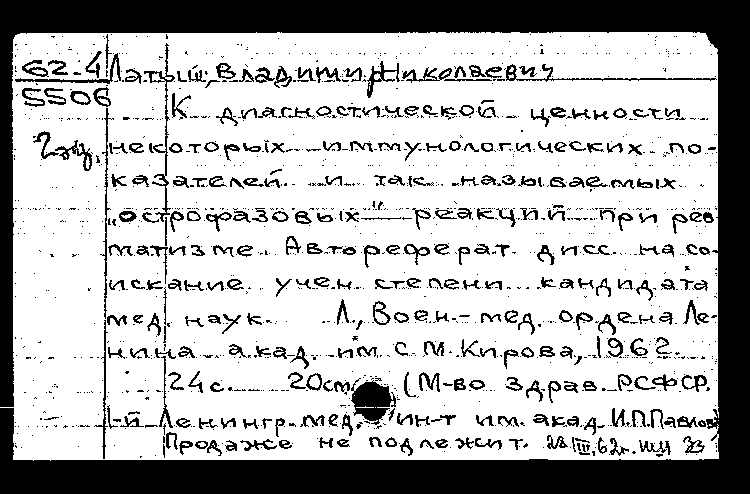 62-4 Латыш, Владимир Николаевич
5506
К диагностической ценности
2 экз. некоторых иммунологических по-
казателей и так называемых
„острофазовых" реакций при рев-
матизме. Автореферат дисс. на со-
искание учен. степени кандидата
мед. наук. Л., Воен.-мед. ордена Ле-
нина акад. им С.М. Кирова, 1962.
24 с. 20 см (М-во здрав. РСФСР.
1-й Ленингр. мед. ин-т им. акад. И.П. Павлова)
Продаже не подлежит. 28/III.62г.